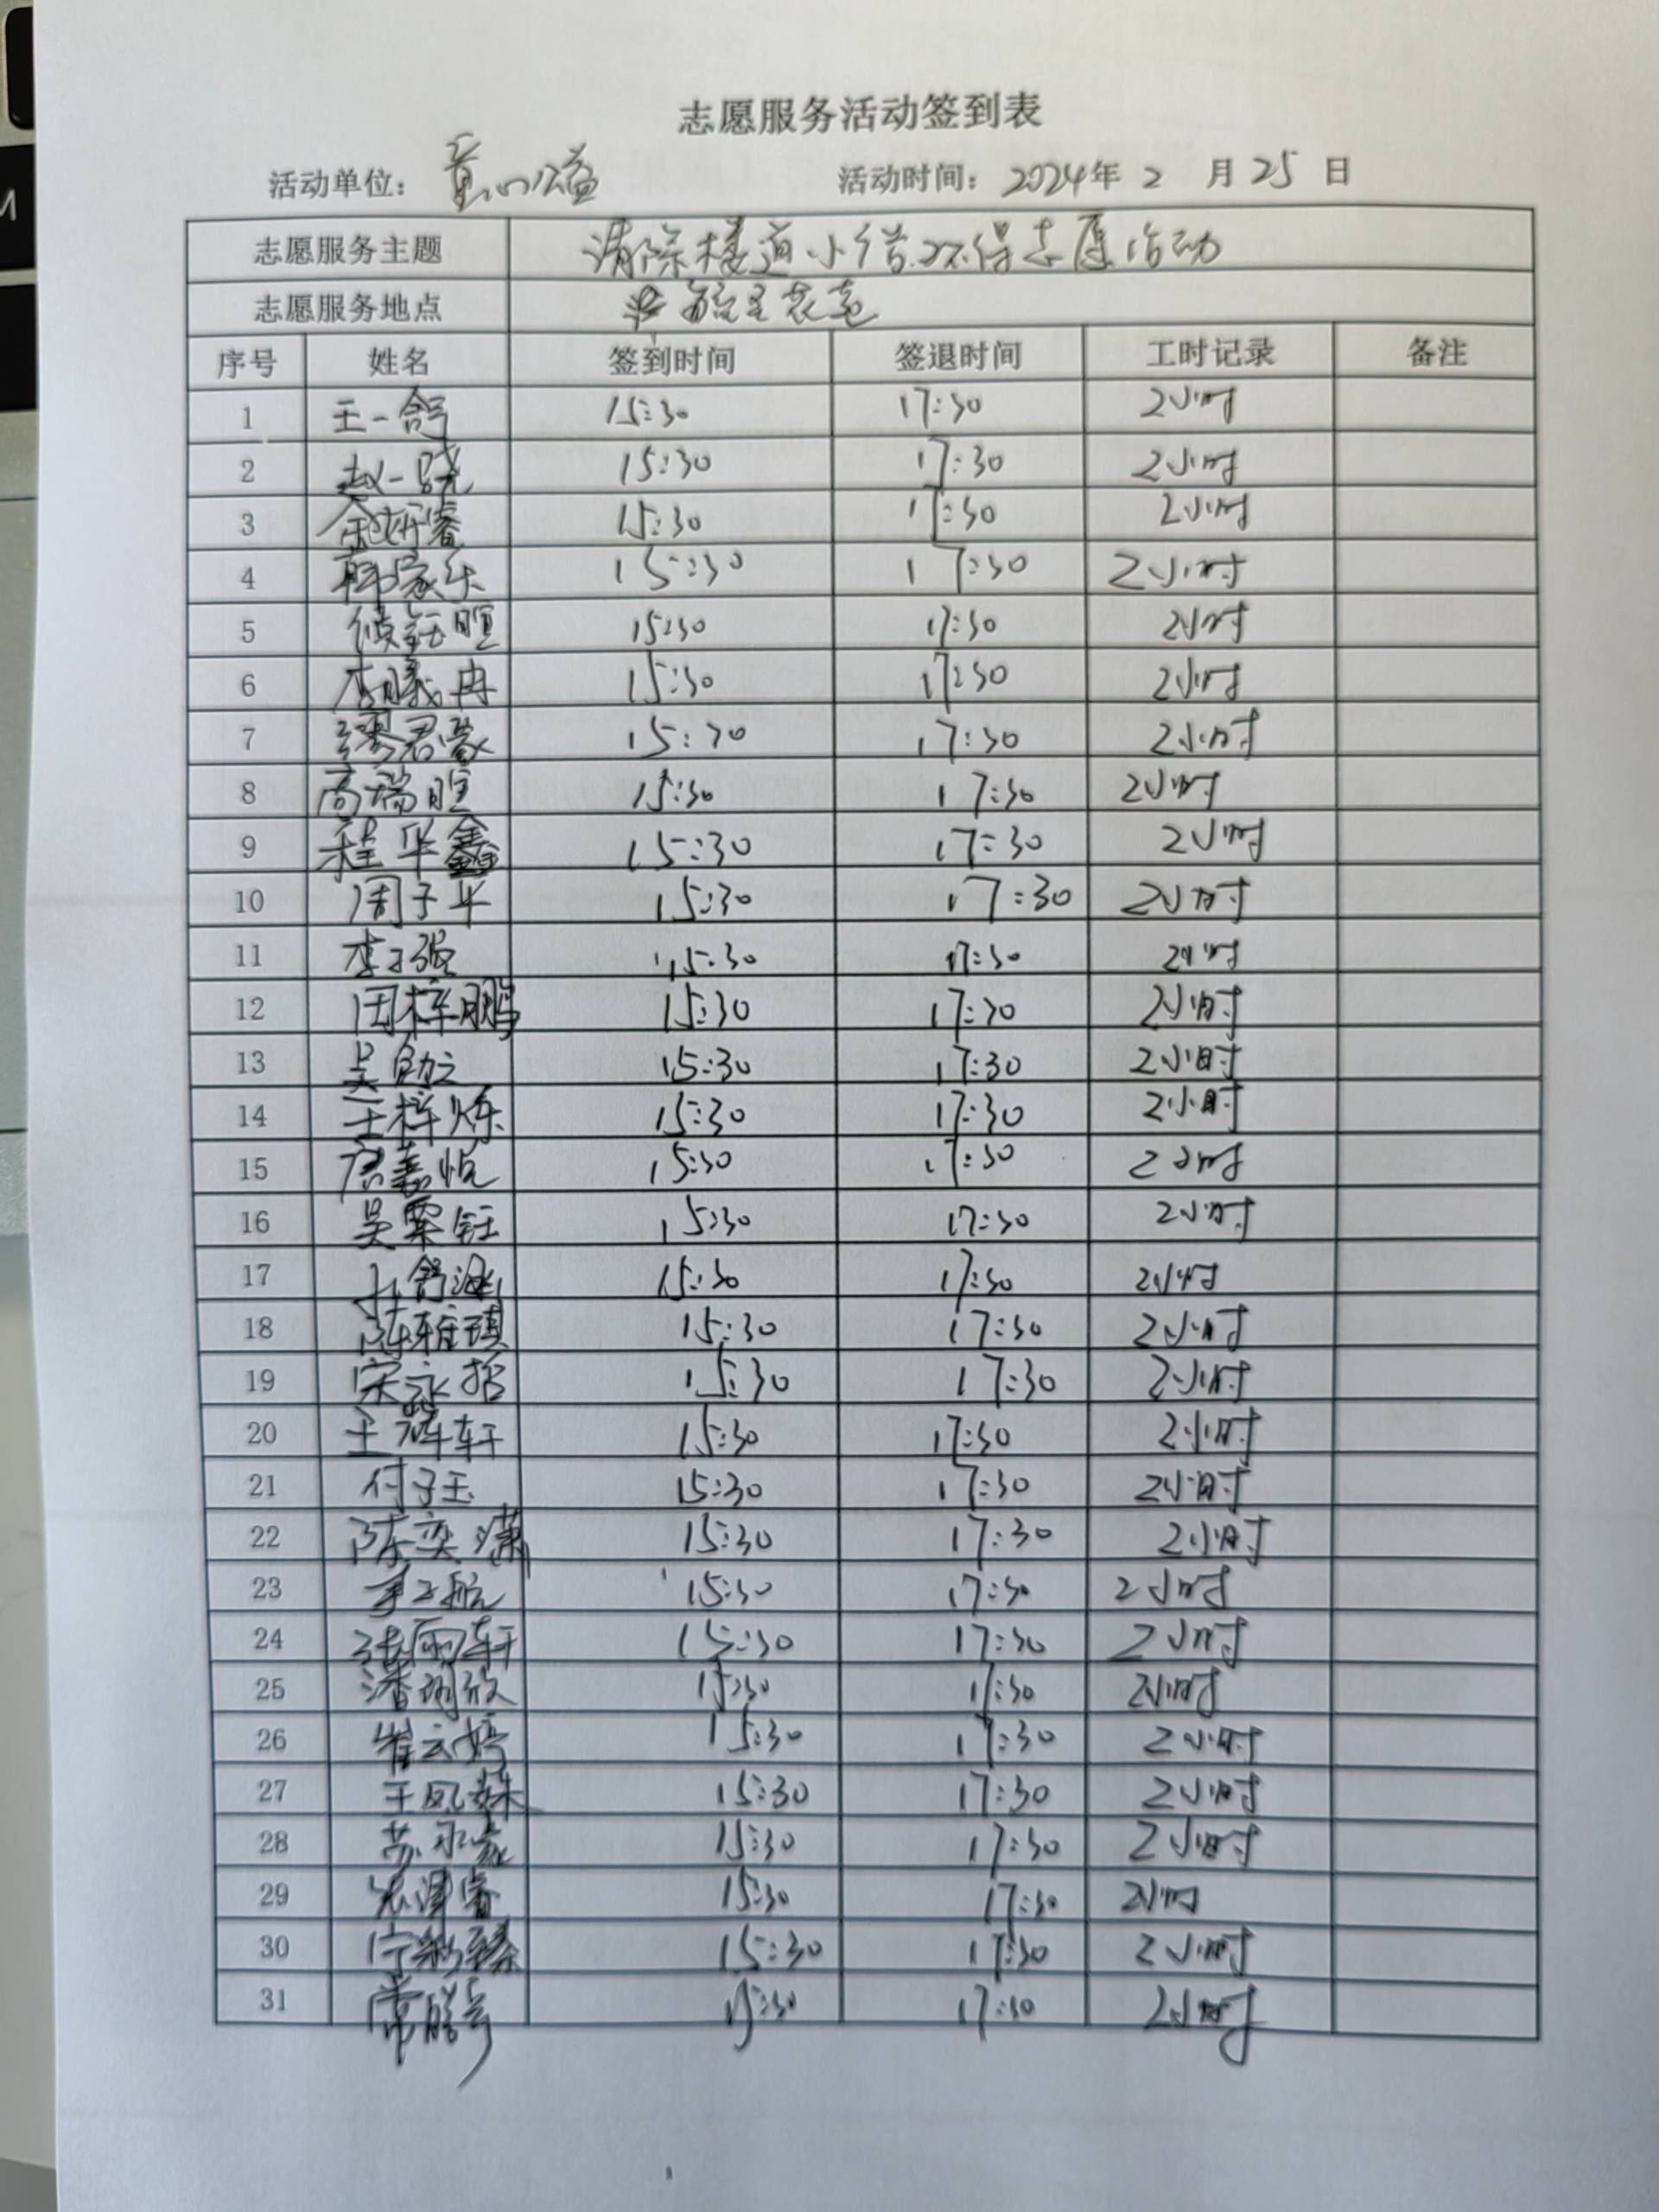 志愿服务活动签到表
活动单位：童心公益 活动时间：2024年 2 月 25 日
志愿服务主题 清除楼道小广告环保志愿活动
志愿服务地点
序号 姓名 签到时间 签退时间 工时记录 备注
1 王一舒 15:30 17:30 2小时
2 赵一骁 15:30 17:30 2小时
3 余妍睿 15:30 17:30 2小时
4 韩家乐 15:30 17:30 2小时
5 钰暄 15:30 17:30 2小时
6 李曦冉 15:30 17:30 2小时
7 君豪 15:30 17:30 2小时
8 高瑞暄 15:30 17:30 2小时
9 程华鑫 15:30 17:30 2小时
10 周子华 15:30 17:30 2小时
11 李子强 15:30 17:30 2小时
12 田梓鹏 15:30 17:30 2小时
13 吴 15:30 17:30 2小时
14 王梓烁 15:30 17:30 2小时
15 唐嘉悦 15:30 17:30 2小时
16 吴霈钰 15:30 17:30 2小时
17 舒涵 15:30 17:30 2小时
18 陈雅琪 15:30 17:30 2小时
19 宋永哲 15:30 17:30 2小时
20 王 轩 15:30 17:30 2小时
21 付子玉 15:30 17:30 2小时
22 陈奕潇 15:30 17:30 2小时
23 航 15:30 17:30 2小时
24 张雨轩 15:30 17:30 2小时
25 潘 欣 15:30 17:30 2小时
26 崔云婷 15:30 17:30 2小时
27 王凤姝 15:30 17:30 2小时
28 苏 15:30 17:30 2小时
29 睿 15:30 17:30 2小时
30 15:30 17:30 2小时
31 常 15:30 17:30 2小时